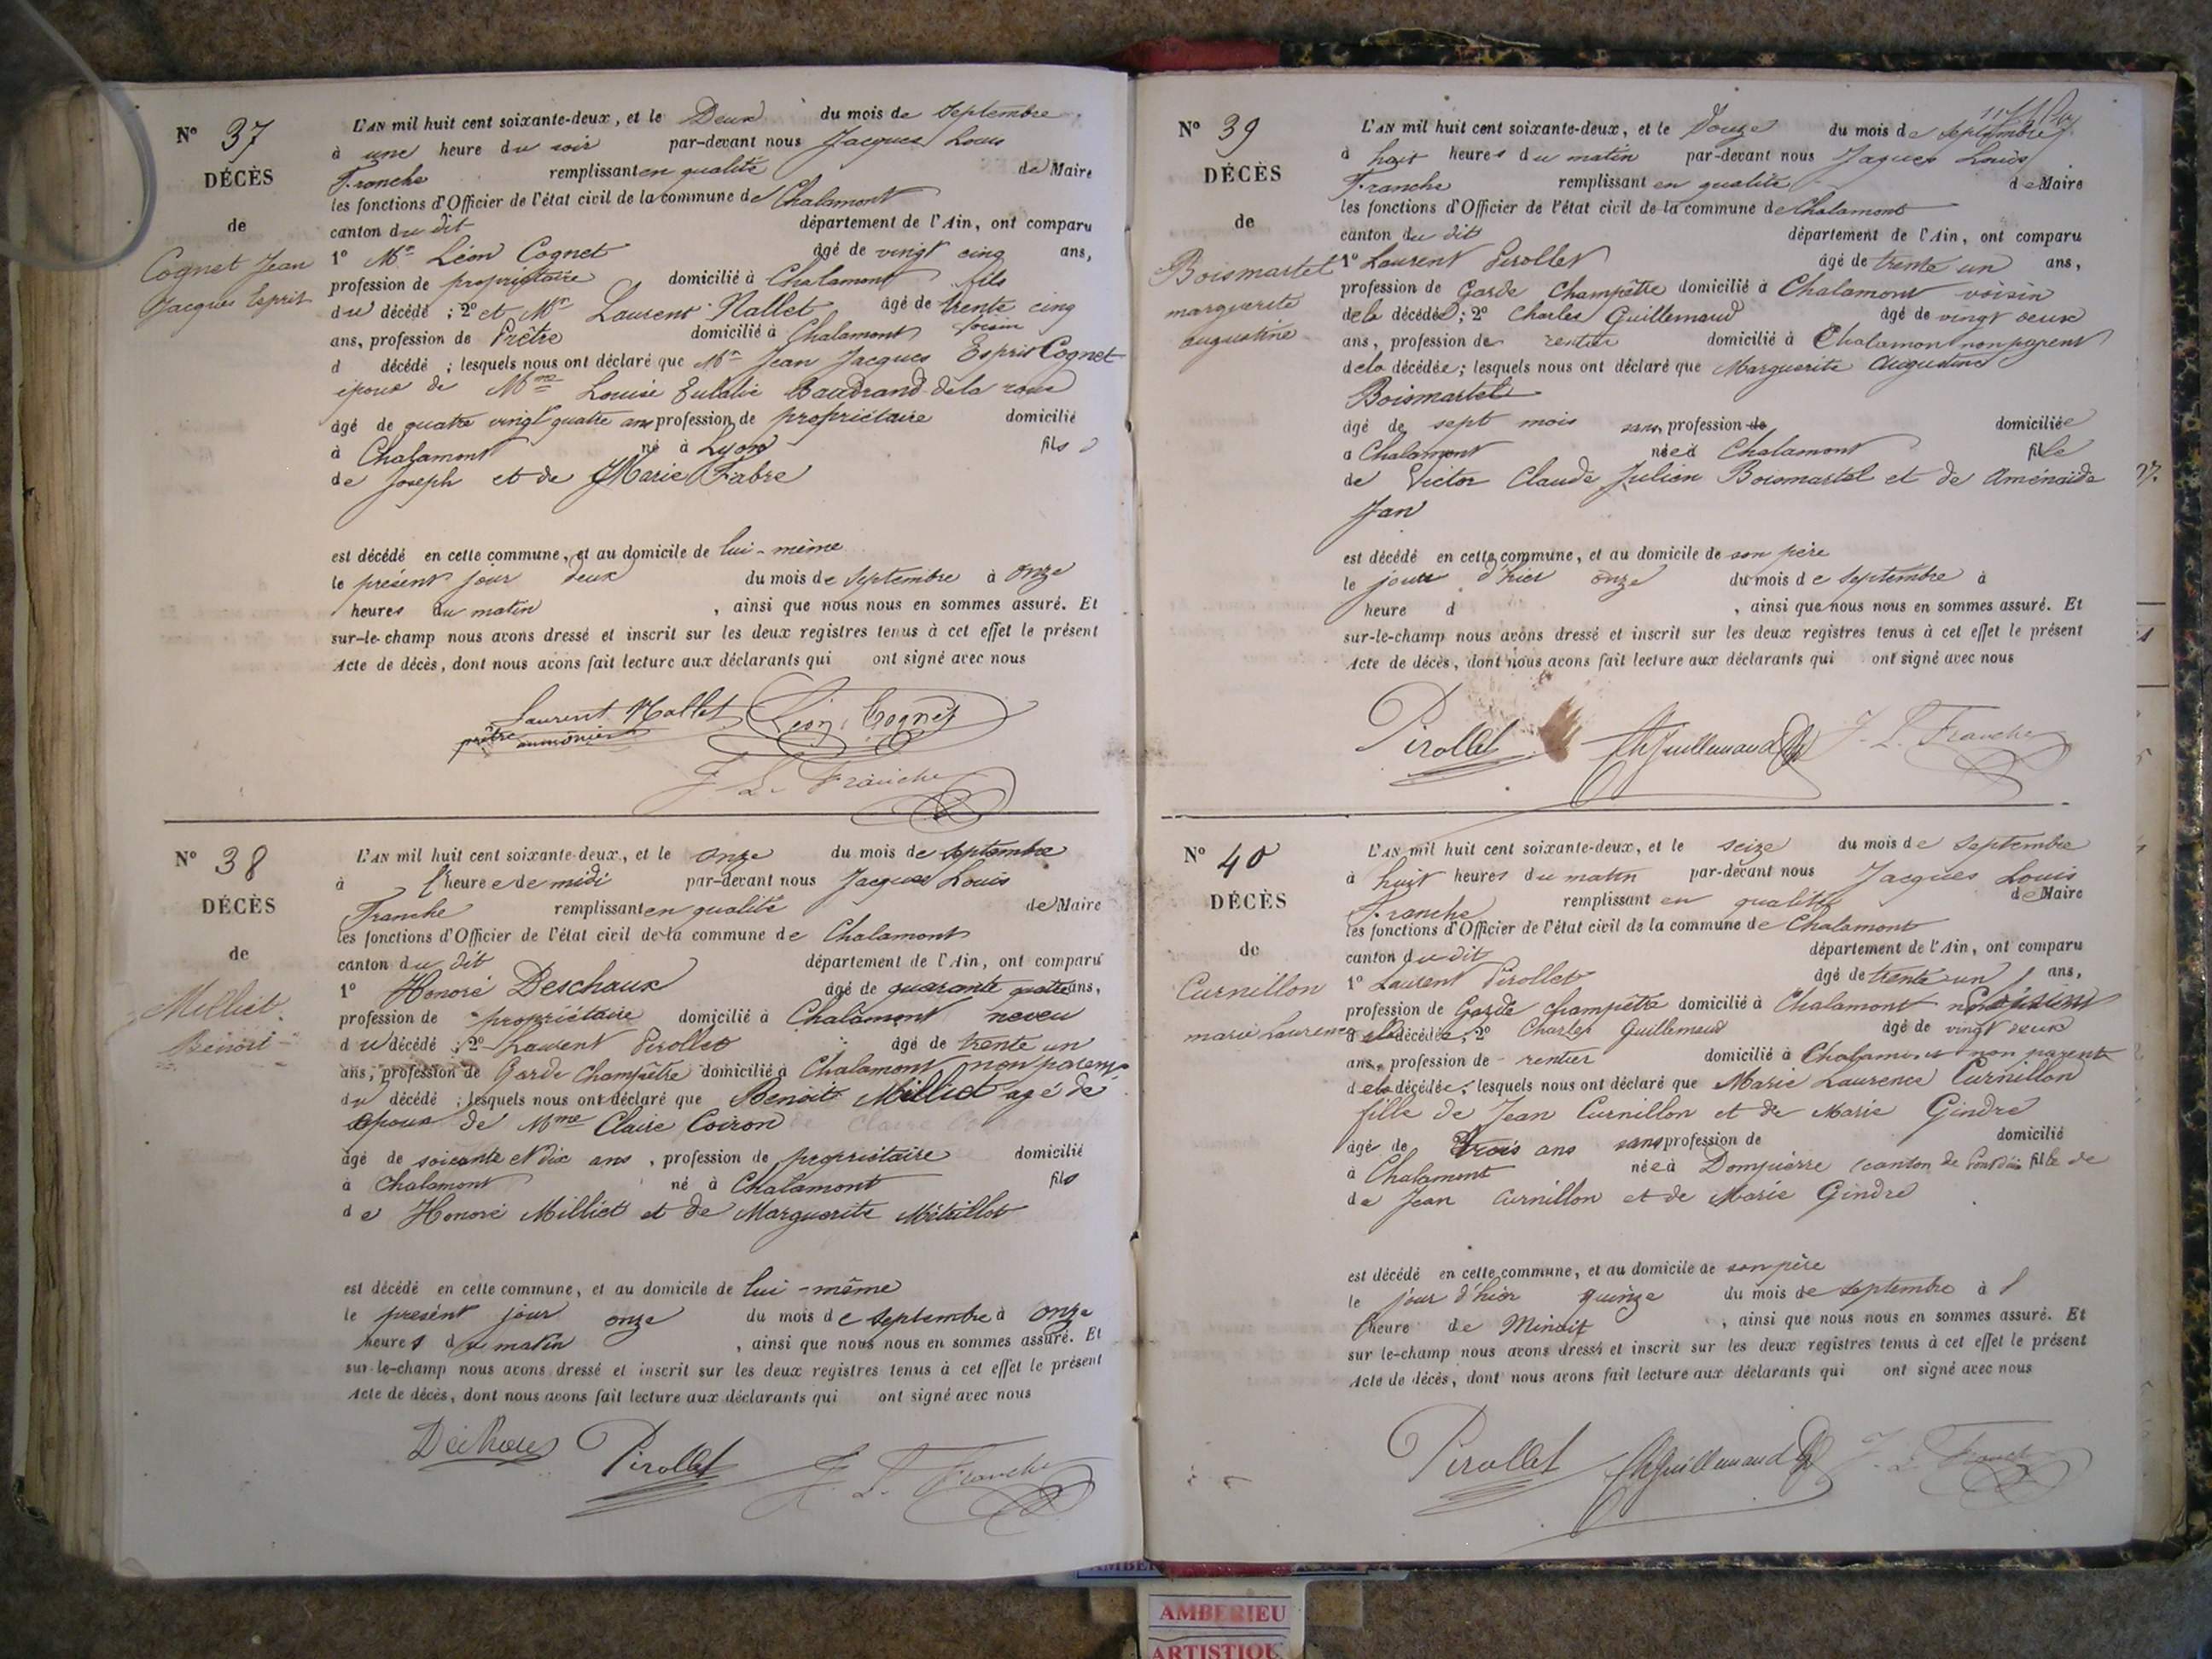 N° 37
DÉCÈS
de
Cognet Jean
Jacques Esprit
L'AN mil huit cent soixante-deux, et le Deux du mois de Septembre
à une heure du soir par-devant nous Jacques Louis
Franche remplissant en qualité de Maire
les fonctions d'Officier de l'état civil de la commune de Chalamont
canton du dit département de l'Ain, ont comparu
1° Mr Léon Cognet âgé de vingt cinq ans,
profession de propriétaire domicilié à Chalamont fils
du décédé ; 2° et Mr Laurent Nallet âgé de trente cinq
ans, profession de Prêtre domicilié à Chalamont voisin
d décédé ; lesquels nous ont déclaré que Mr Jean Jacques Esprit Cognet
époux de Mme Louise Eulalie Baudrand dela
âgé de quatre vingt quatre ans profession de propriétaire domicilié
à Chalamont né à Lyon fils
de Joseph et de Marie Fabre
est décédé en cette commune, et au domicile de lui-même
le présent jour deux du mois de Septembre à onze
heures du matin , ainsi que nous nous en sommes assuré. Et
sur-le-champ nous avons dressé et inscrit sur les deux registres tenus à cet effet le présent
Acte de décès, dont nous avons fait lecture aux déclarants qui ont signé avec nous
Laurent Nallet Léon Cognet
prêtre aumônier
J. L. Franche
N° 38
DÉCÈS
de
Milliet
Benoit
L'AN mil huit cent soixante-deux, et le onze du mois de septembre
à l'heure de midi par-devant nous Jacques Louis
Franche remplissant en qualité de Maire
les fonctions d'Officier de l'état civil de la commune de Chalamont
canton du dit département de l'Ain, ont comparu
1° Honoré Deschaux âgé de quarante quatre ans,
profession de propriétaire domicilié à Chalamont neveu
du décédé ; 2° Laurent Pirollet âgé de trente un
ans, profession de Garde Champêtre domicilié à Chalamont non parent
du décédé ; lesquels nous ont déclaré que Benoit Milliet agé de
époux de Mme Claire Coiron
âgé de soixante et dix ans , profession de propriétaire domicilié
à Chalamont né à Chalamont fils
de Honoré Milliet et de Marguerite Métrillot
est décédé en cette commune, et au domicile de lui-même
le présent jour onze du mois de septembre à onze
heures du matin , ainsi que nous nous en sommes assuré. Et
sur-le-champ nous avons dressé et inscrit sur les deux registres tenus à cet effet le présent
Acte de décès, dont nous avons fait lecture aux déclarants qui ont signé avec nous
Pirollet J. L. Franche
N° 39
DÉCÈS
de
Boismartel
marguerite
augustine
L'AN mil huit cent soixante-deux, et le Douze du mois de septembre
à huit heures du matin par-devant nous Jaques Louis
Franche remplissant en qualité de Maire
les fonctions d'Officier de l'état civil de la commune de Chalamont
canton du dit département de l'Ain, ont comparu
1° Laurent Pirollet âgé de trente un ans,
profession de Garde Champêtre domicilié à Chalamont voisin
dela décédée ; 2° Charles Guillemaud âgé de vingt deux
ans, profession de rentier domicilié à Chalamont non parent
dela décédée ; lesquels nous ont déclaré que Marguerite Augustine
Boismartel
âgé de sept mois sans profession de domiciliée
à Chalamont née à Chalamont fille
de Victor Claude Julien Boismartel et de Aménaïde
Jan
est décédé en cette commune, et au domicile de son père
le jour d'hier onze du mois de septembre à
heure d , ainsi que nous nous en sommes assuré. Et
sur-le-champ nous avons dressé et inscrit sur les deux registres tenus à cet effet le présent
Acte de décès, dont nous avons fait lecture aux déclarants qui ont signé avec nous
Pirollet Ch Guillemaud J. L. Franche
N° 40
DÉCÈS
de
Curnillon
marie Laurence
L'AN mil huit cent soixante-deux, et le seize du mois de septembre
à huit heures du matin par-devant nous Jacques Louis
Franche remplissant en qualité de Maire
les fonctions d'Officier de l'état civil de la commune de Chalamont
canton du dit département de l'Ain, ont comparu
1° Laurent Pirollet âgé de trente un ans,
profession de Garde champêtre domicilié à Chalamont
dela décédée ; 2° Charles Guillemaud âgé de vingt deux
ans, profession de rentier domicilié à Chalamont non parent
dela décédée ; lesquels nous ont déclaré que Marie Laurence Curnillon
fille de Jean Curnillon et de Marie Gindre
âgé de trois ans sans profession de domicilié
à Chalamont née à Dompierre (canton de fille de
de Jean Curnillon et de Marie Gindre
est décédé en cette commune, et au domicile de son père
le jour d'hier quinze du mois de septembre à l
heure de Minuit , ainsi que nous nous en sommes assuré. Et
sur le-champ nous avons dressé et inscrit sur les deux registres tenus à cet effet le présent
Acte de décès, dont nous avons fait lecture aux déclarants qui ont signé avec nous
Pirollet Ch Guillemaud J. L. Franche
AMBERIEU
ARTISTIQU